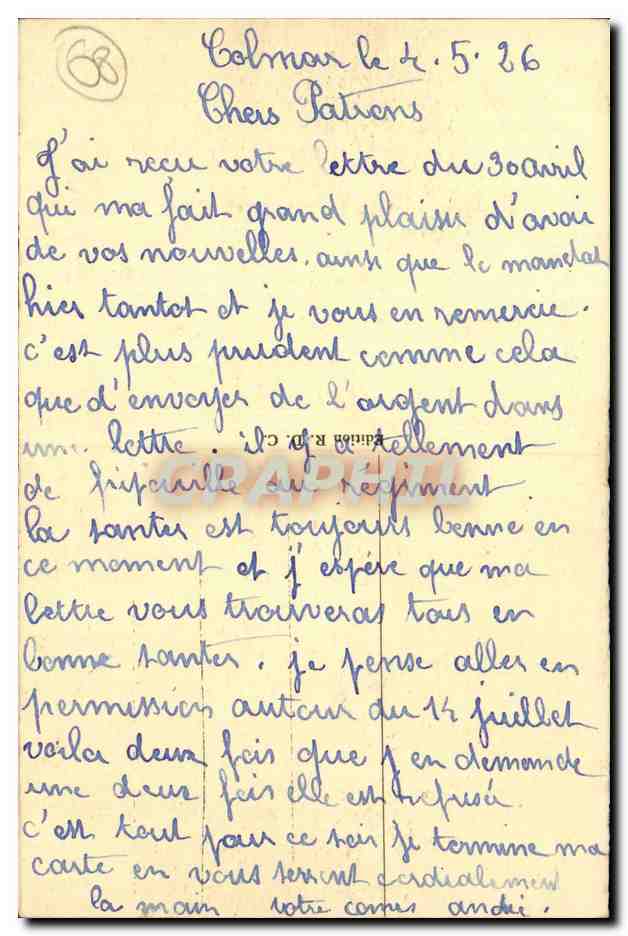 68
Colmar le 4.5.26
Chers Patrons
J'ai reçu votre lettre du 30 avril
qui ma fait grand plaisir d'avoir
de vos nouvelles. ainsi que le mandat
hier tantot et je vous en remercie.
c'est plus prudent comme cela
que d'envoyer de l'argent dans
une lettre. il y a tellement
Edition R. D. C.
GRAPHTI
de fripouille au regiment
la santer est toujours bonne en
ce moment et j'espére que ma
lettre vous trouveras tous en
bonne santer. je pense aller en
permission autour du 14 juillet
voila deux fois que j'en demande
une deux fois elle est refusée
c'est tout pour ce soir je termine ma
carte en vous serrent cordialement
la main votre comis andré.